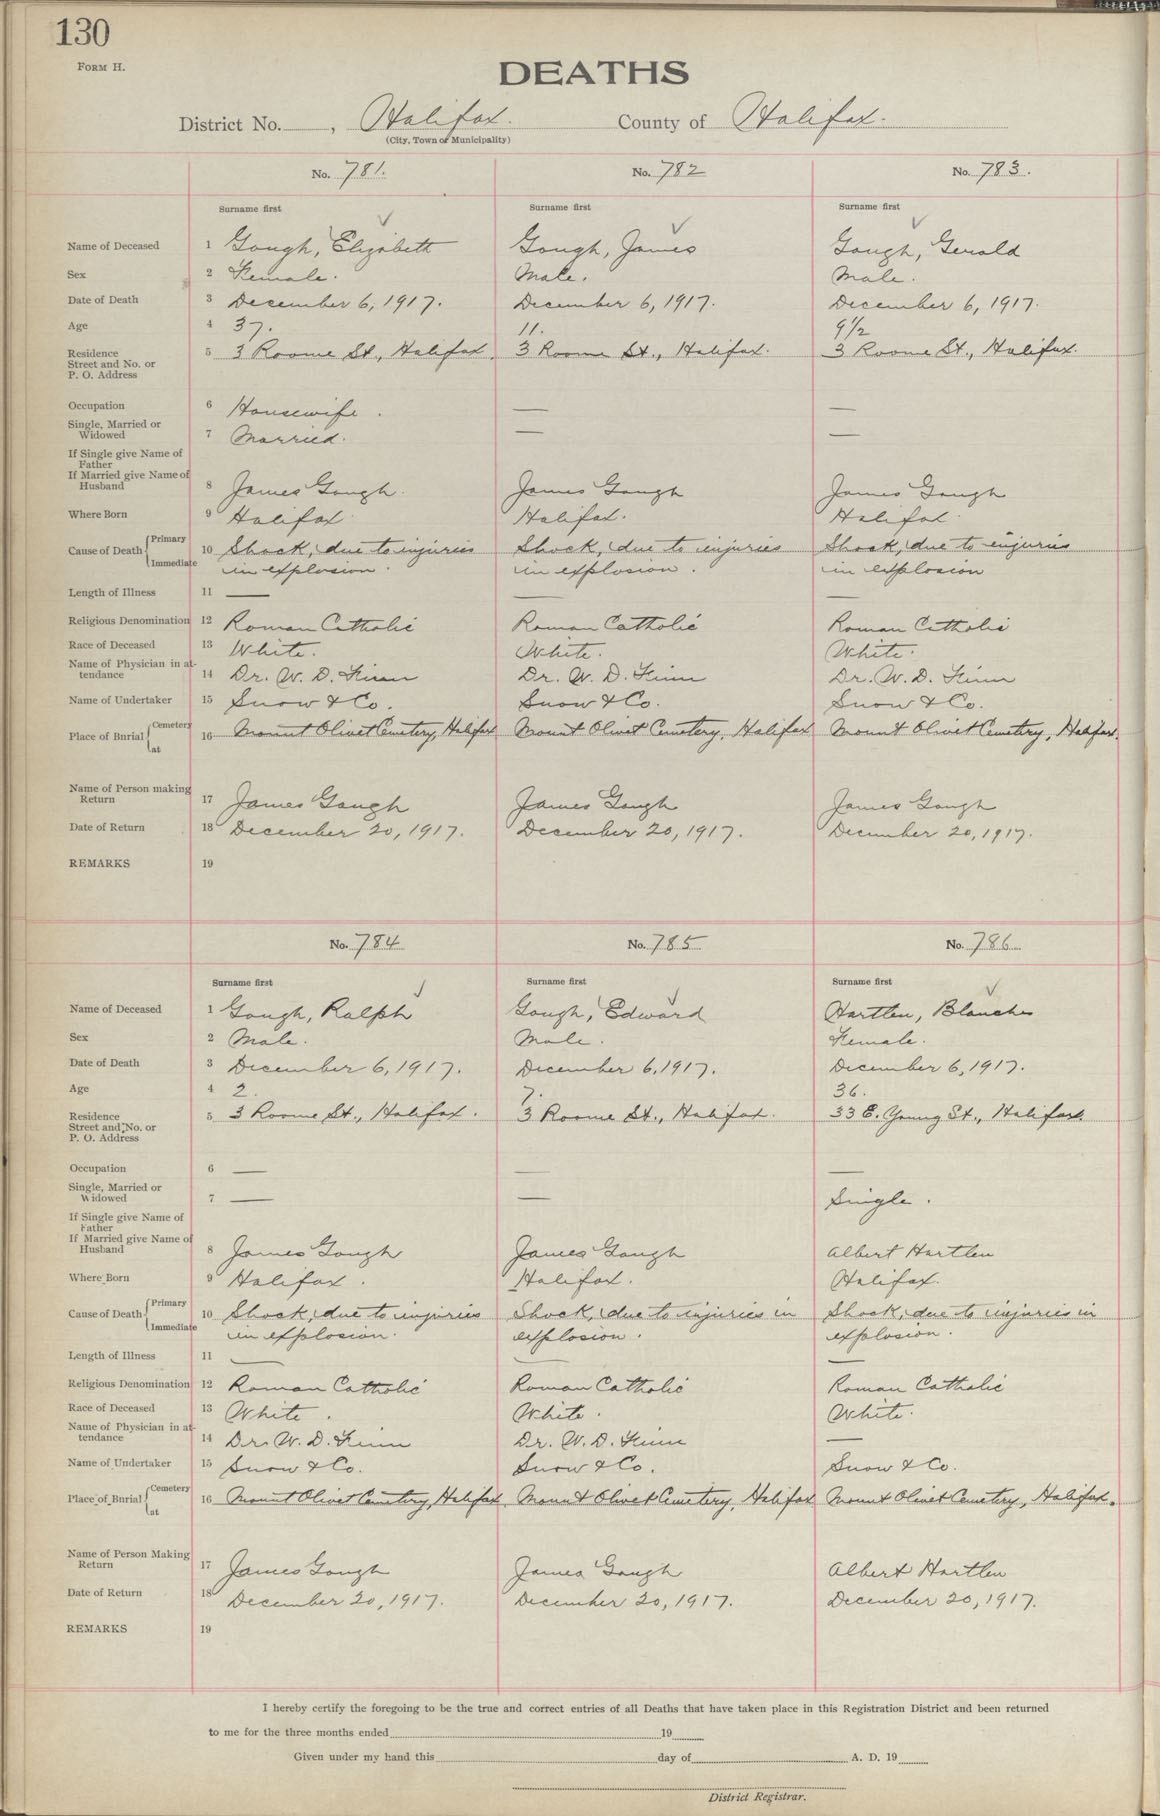 130
FORM H.
DEATHS
District No. , Halifax. County of Halifax.
(City, Town or Municipality)
No. 781. No. 782 No. 783.
Surname first Surname first Surname first
Name of Deceased 1 Gough, Elizabeth Gough, James Gough, Gerald
Sex 2 Female. Male. Male.
Date of Death 3 December 6, 1917. December 6, 1917. December 6, 1917.
Age 4 37. 11. 9 1/2
Residence
Street and No. or
P. O. Address 5 3 Roome St., Halifax. 3 Roome St., Halifax. 3 Roome St., Halifax.
Occupation 6 Housewife. — —
Single, Married or
Widowed 7 Married. — —
If Single give Name of
Father
If Married give Name of
Husband 8 James Gough. James Gough James Gough
Where Born 9 Halifax Halifax. Halifax
Cause of Death { Primary
Immediate 10 Shock, due to injuries Shock, due to injuries Shock, due to injuries
in explosion. in explosion. in explosion
Length of Illness 11 — — —
Religious Denomination 12 Roman Catholic Roman Catholic Roman Catholic
Race of Deceased 13 White. White. White.
Name of Physician in at-
tendance 14 Dr. W. D. Finn Dr. W. D. Finn Dr. W. D. Finn
Name of Undertaker 15 Snow & Co. Snow & Co. Snow & Co.
Place of Burial { Cemetery
at 16 Mount Olivet Cemetery, Halifax Mount Olivet Cemetery, Halifax Mount Olivet Cemetery, Halifax.
Name of Person making
Return 17 James Gough James Gough James Gough
Date of Return 18 December 20, 1917. December 20, 1917. December 20, 1917.
REMARKS 19
No. 784 No. 785 No. 786
Surname first Surname first Surname first
Name of Deceased 1 Gough, Ralph Gough, Edward Hartlen, Blanche
Sex 2 Male. Male. Female.
Date of Death 3 December 6, 1917. December 6, 1917. December 6, 1917.
Age 4 2. 7. 36.
Residence
Street and No. or
P. O. Address 5 3 Roome St., Halifax. 3 Roome St., Halifax. 33 E. Young St., Halifax.
Occupation 6 — — —
Single, Married or
Widowed 7 — — Single.
If Single give Name of
Father
If Married give Name of
Husband 8 James Gough James Gough Albert Hartlen
Where Born 9 Halifax. Halifax. Halifax.
Cause of Death { Primary
Immediate 10 Shock, due to injuries Shock, due to injuries in Shock, due to injuries in
in explosion. explosion. explosion.
Length of Illness 11 — — —
Religious Denomination 12 Roman Catholic Roman Catholic Roman Catholic
Race of Deceased 13 White. White. White.
Name of Physician in at-
tendance 14 Dr. W. D. Finn Dr. W. D. Finn —
Name of Undertaker 15 Snow & Co. Snow & Co. Snow & Co.
Place of Burial { Cemetery
at 16 Mount Olivet Cemetery, Halifax Mount Olivet Cemetery, Halifax Mount Olivet Cemetery, Halifax.
Name of Person Making
Return 17 James Gough James Gough Albert Hartlen
Date of Return 18 December 20, 1917. December 20, 1917. December 20, 1917.
REMARKS 19
I hereby certify the foregoing to be the true and correct entries of all Deaths that have taken place in this Registration District and been returned
to me for the three months ended 19
Given under my hand this day of A. D. 19
District Registrar.